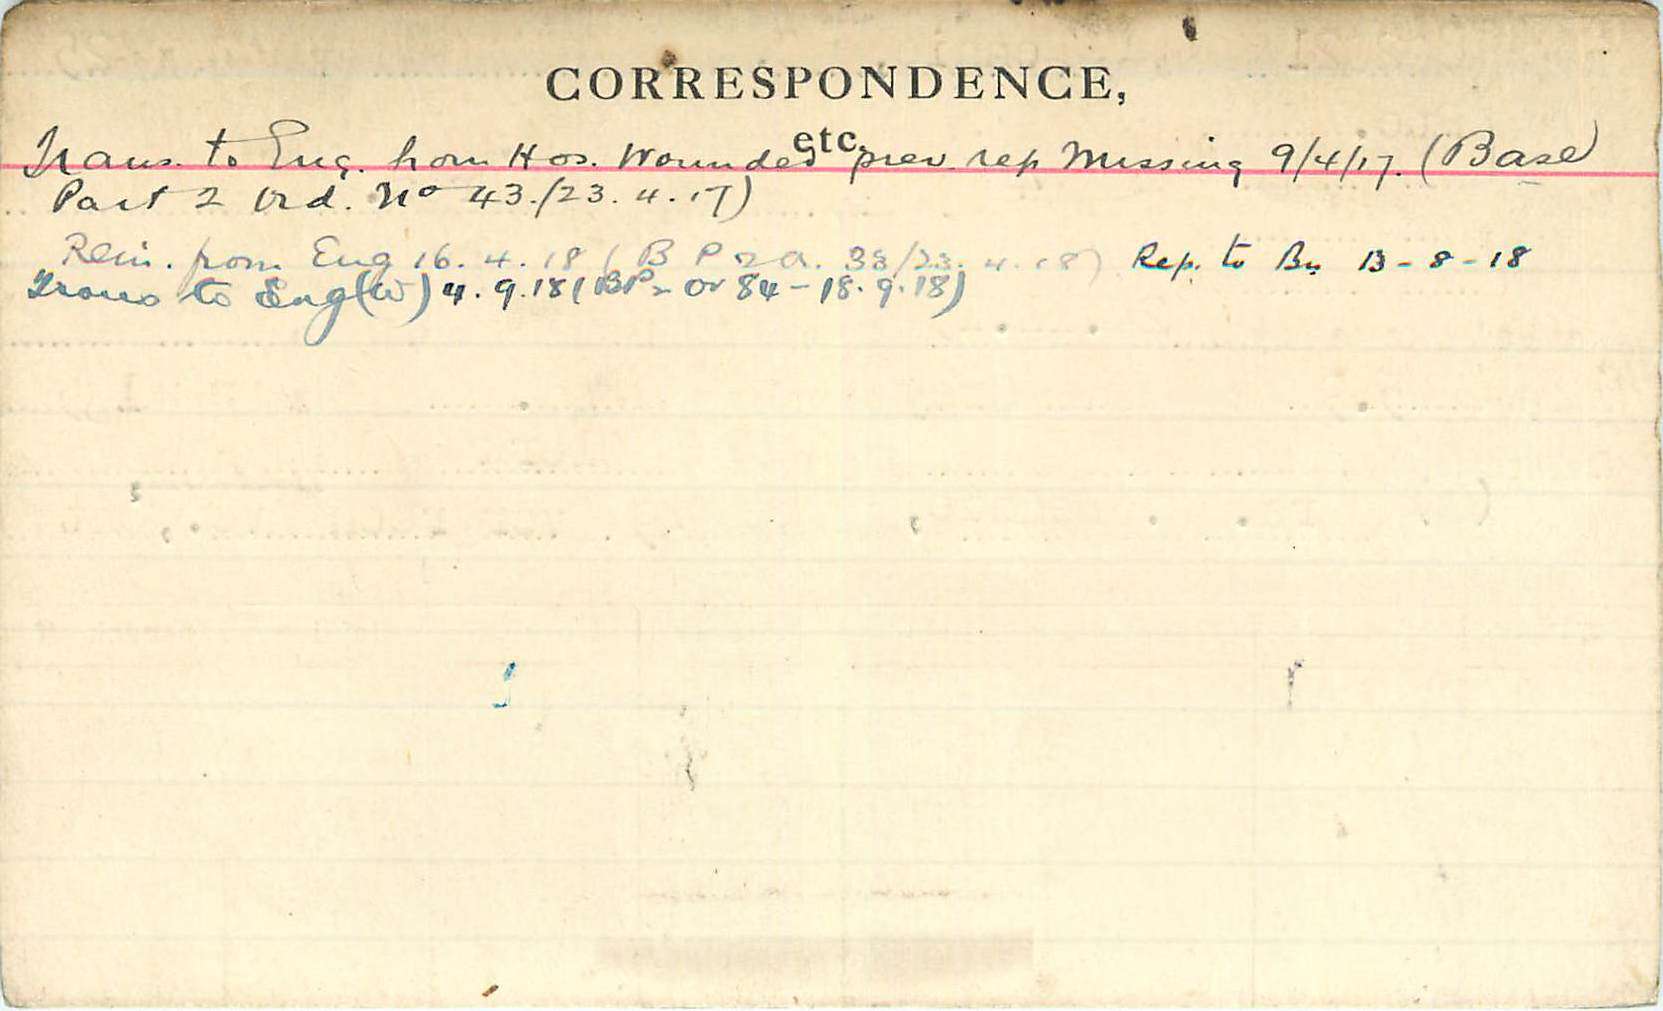 CORRESPONDENCE,
etc.
Trans. to Eng. from Hos. Wounded prev rep Missing 9/4/17. (Base
Part 2 Ord. No 43./23.4.17)
Rein. from Eng 16.4.18 (B P 2 O. 33/23.4.18) Rep. to Bn 13-8-18
Trans to Eng (W) 4.9.18 (BP2 Or 84-18.9.18)